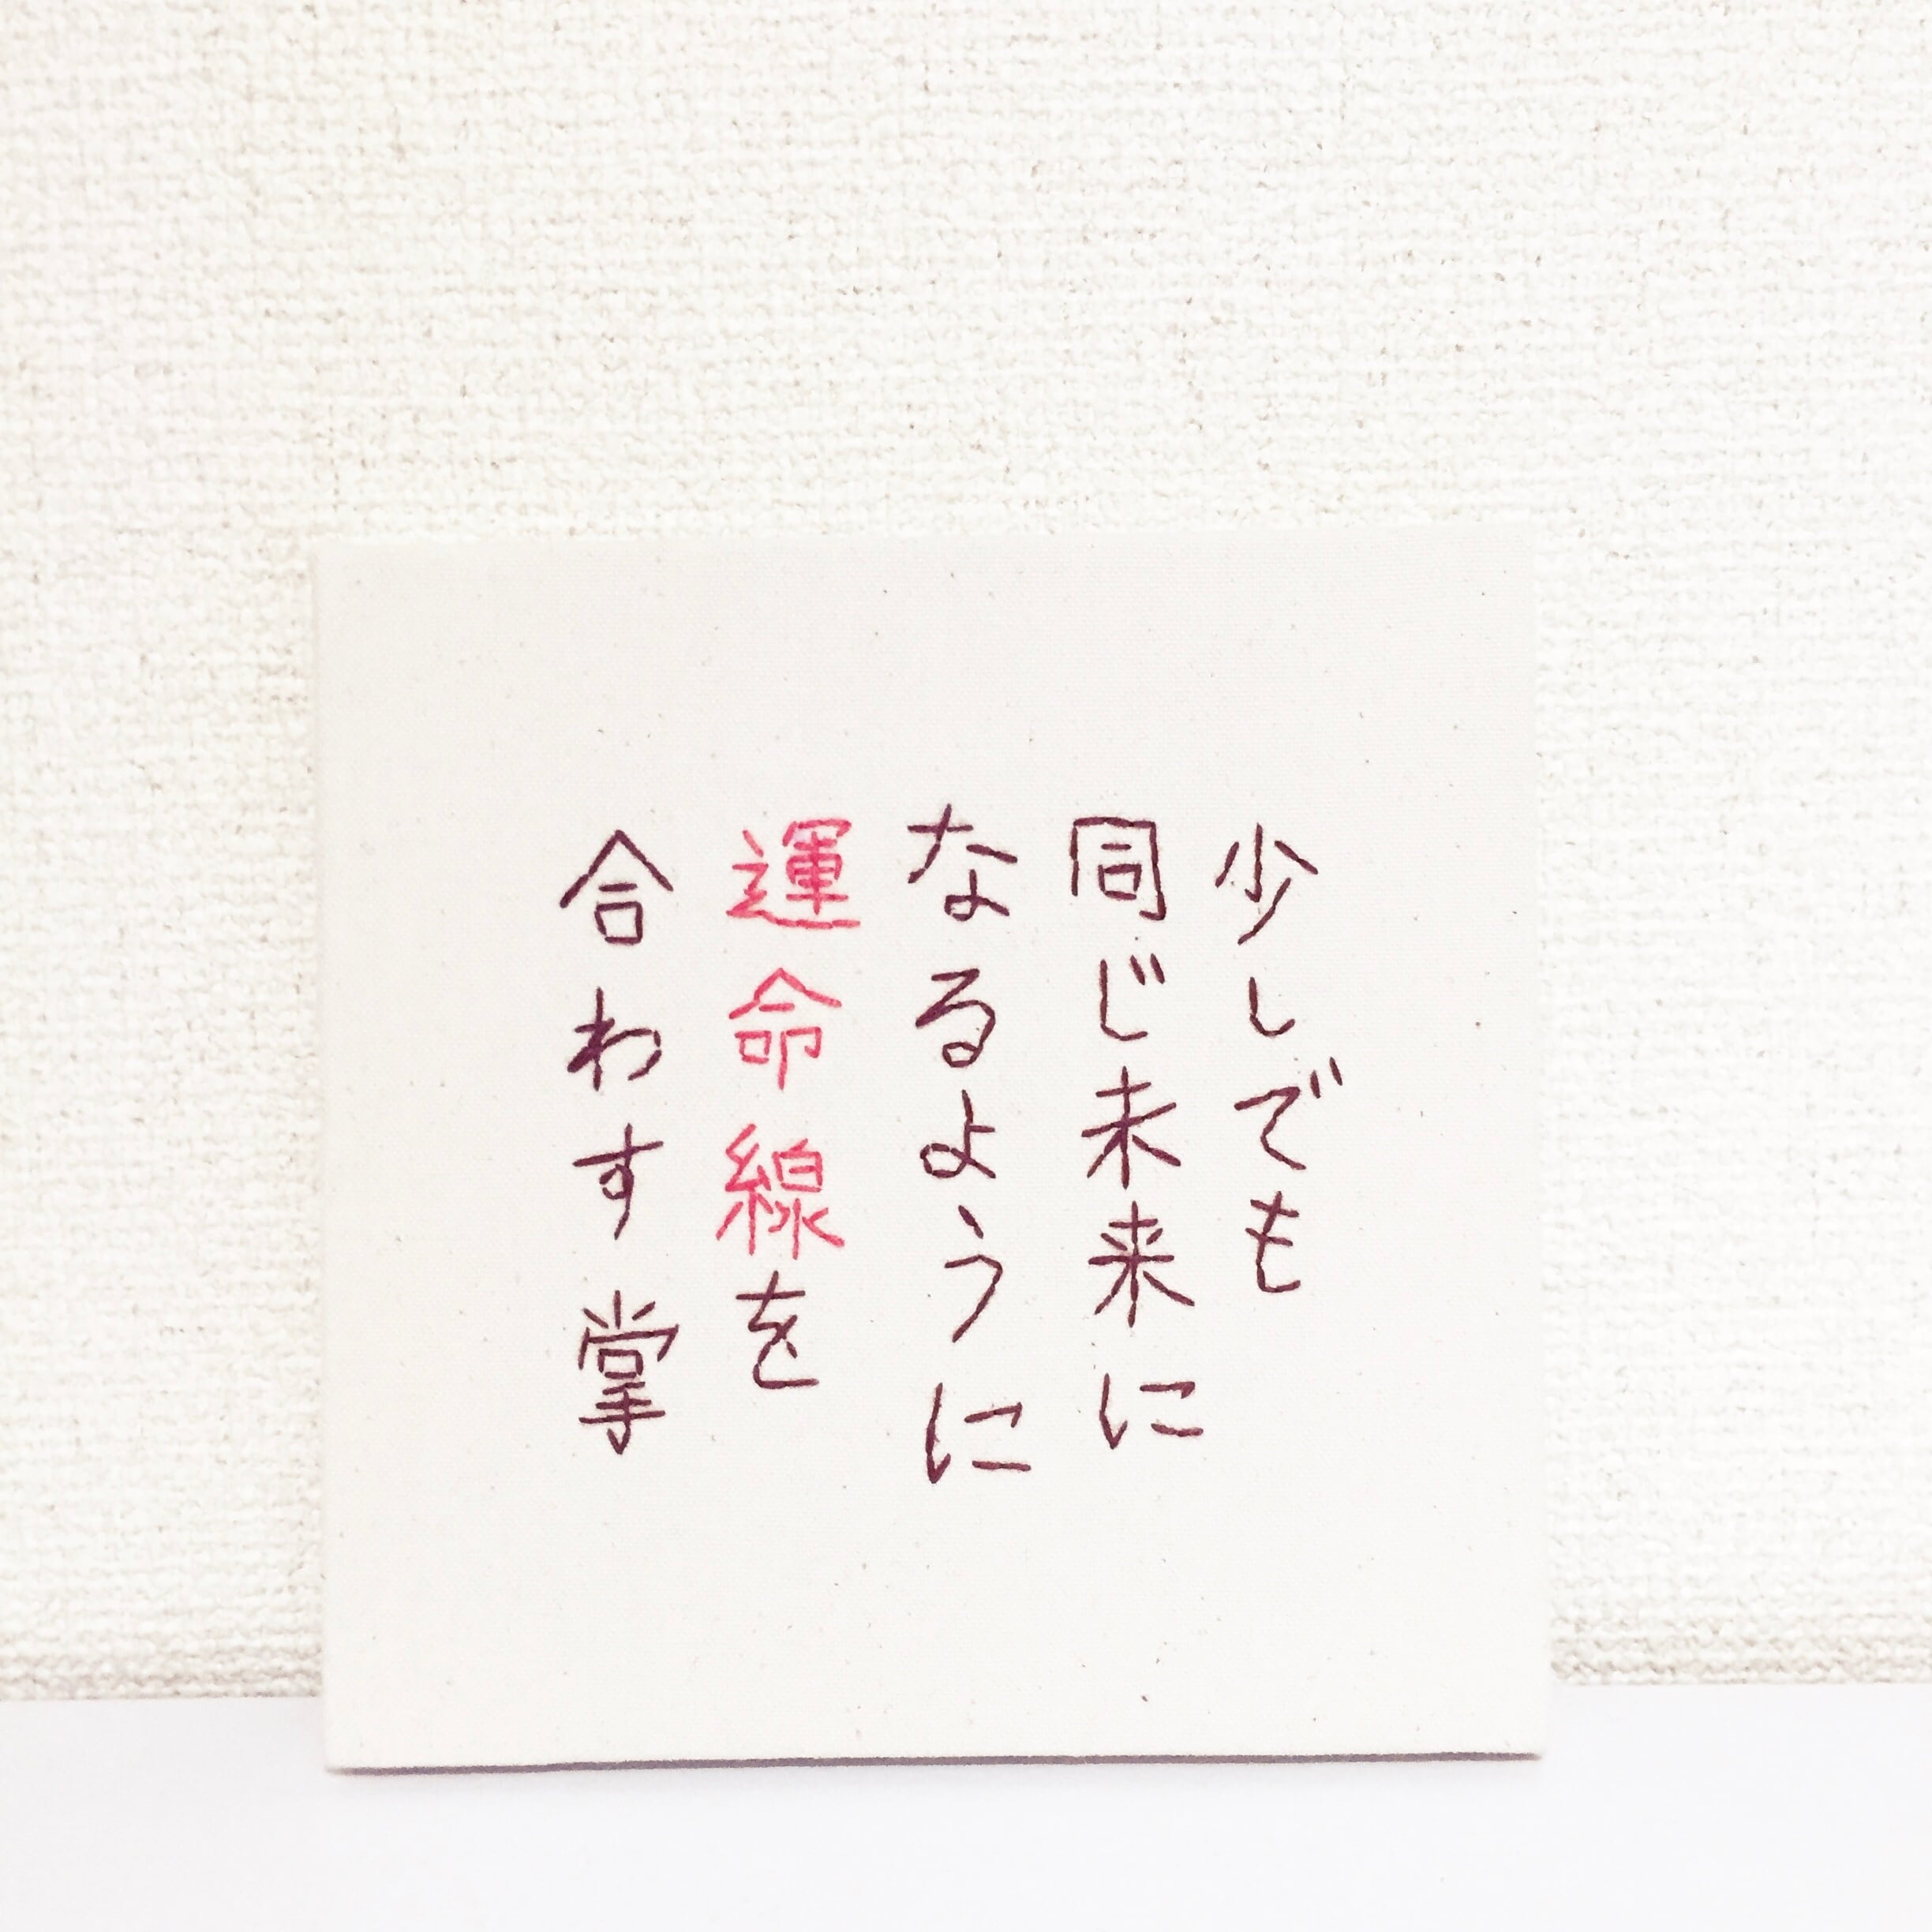 少しでも
同じ未来に
なるように
運命線を
合わす掌